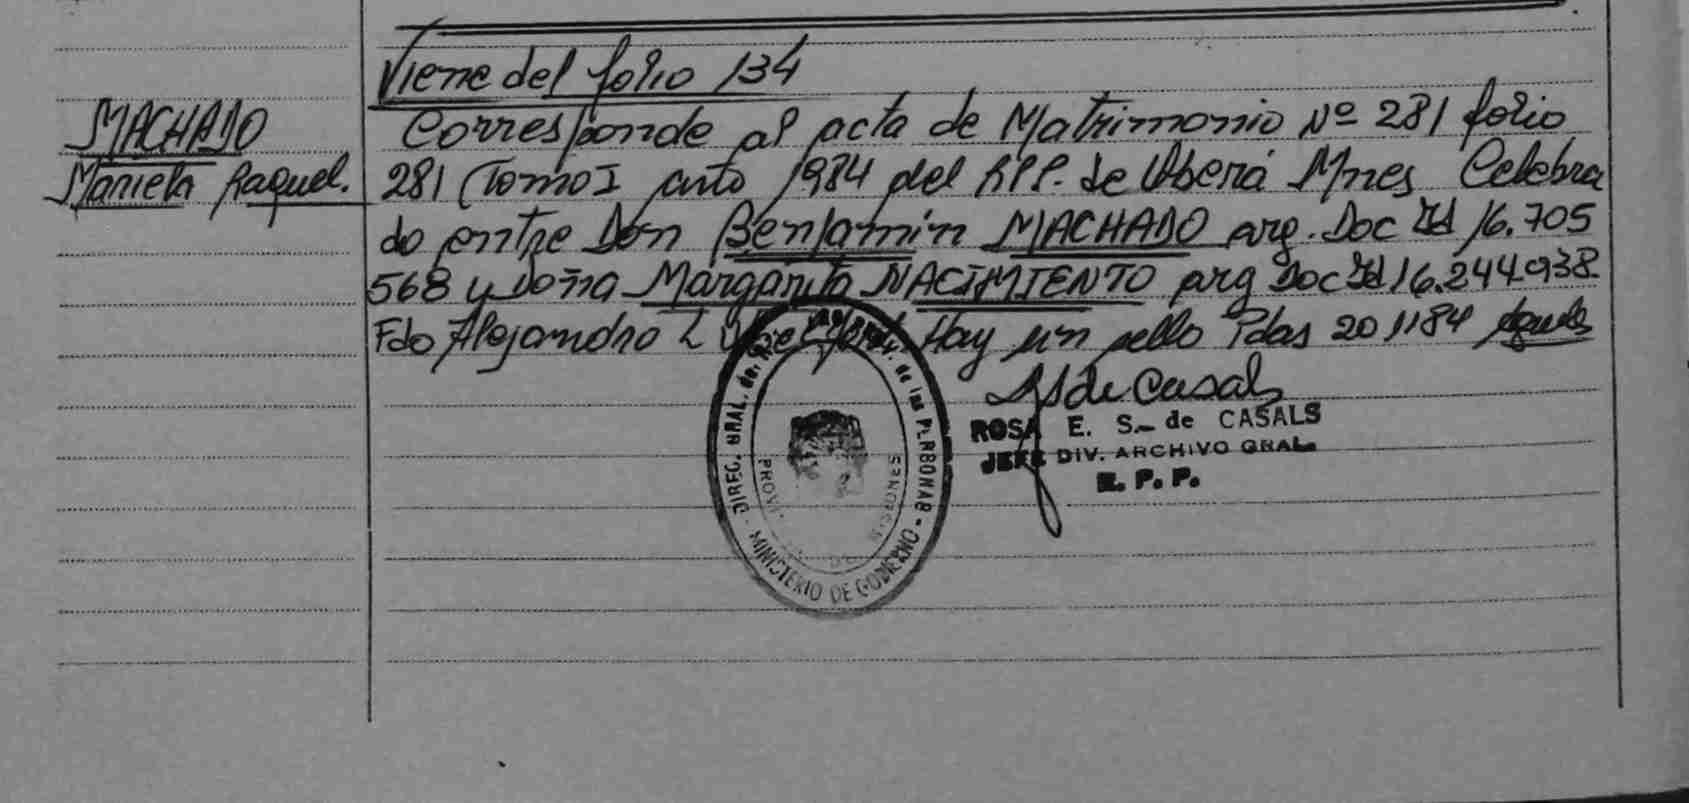 Viene del folio 134
MACHADO
Mariela Raquel.
Corresponde al acta de Matrimonio Nº 281 folio
281 Tomo I año 1984 del RPP. de Oberá Mnes Celebra
do entre Don Benjamin MACHADO arg. Doc Id 16.705
568 y Doña Margarita NACIMIENTO arg Doc Id 16.244.938.
Fdo Alejandro L Hay un sello Pdas 20 11 84
S de Casals
ROSA E. S. de CASALS
JEFE DIV. ARCHIVO GRAL.
R. P. P.
DIREC. GRAL. de de las PERSONAS - MINISTERIO DE GOBIERNO -
DE MISIONES